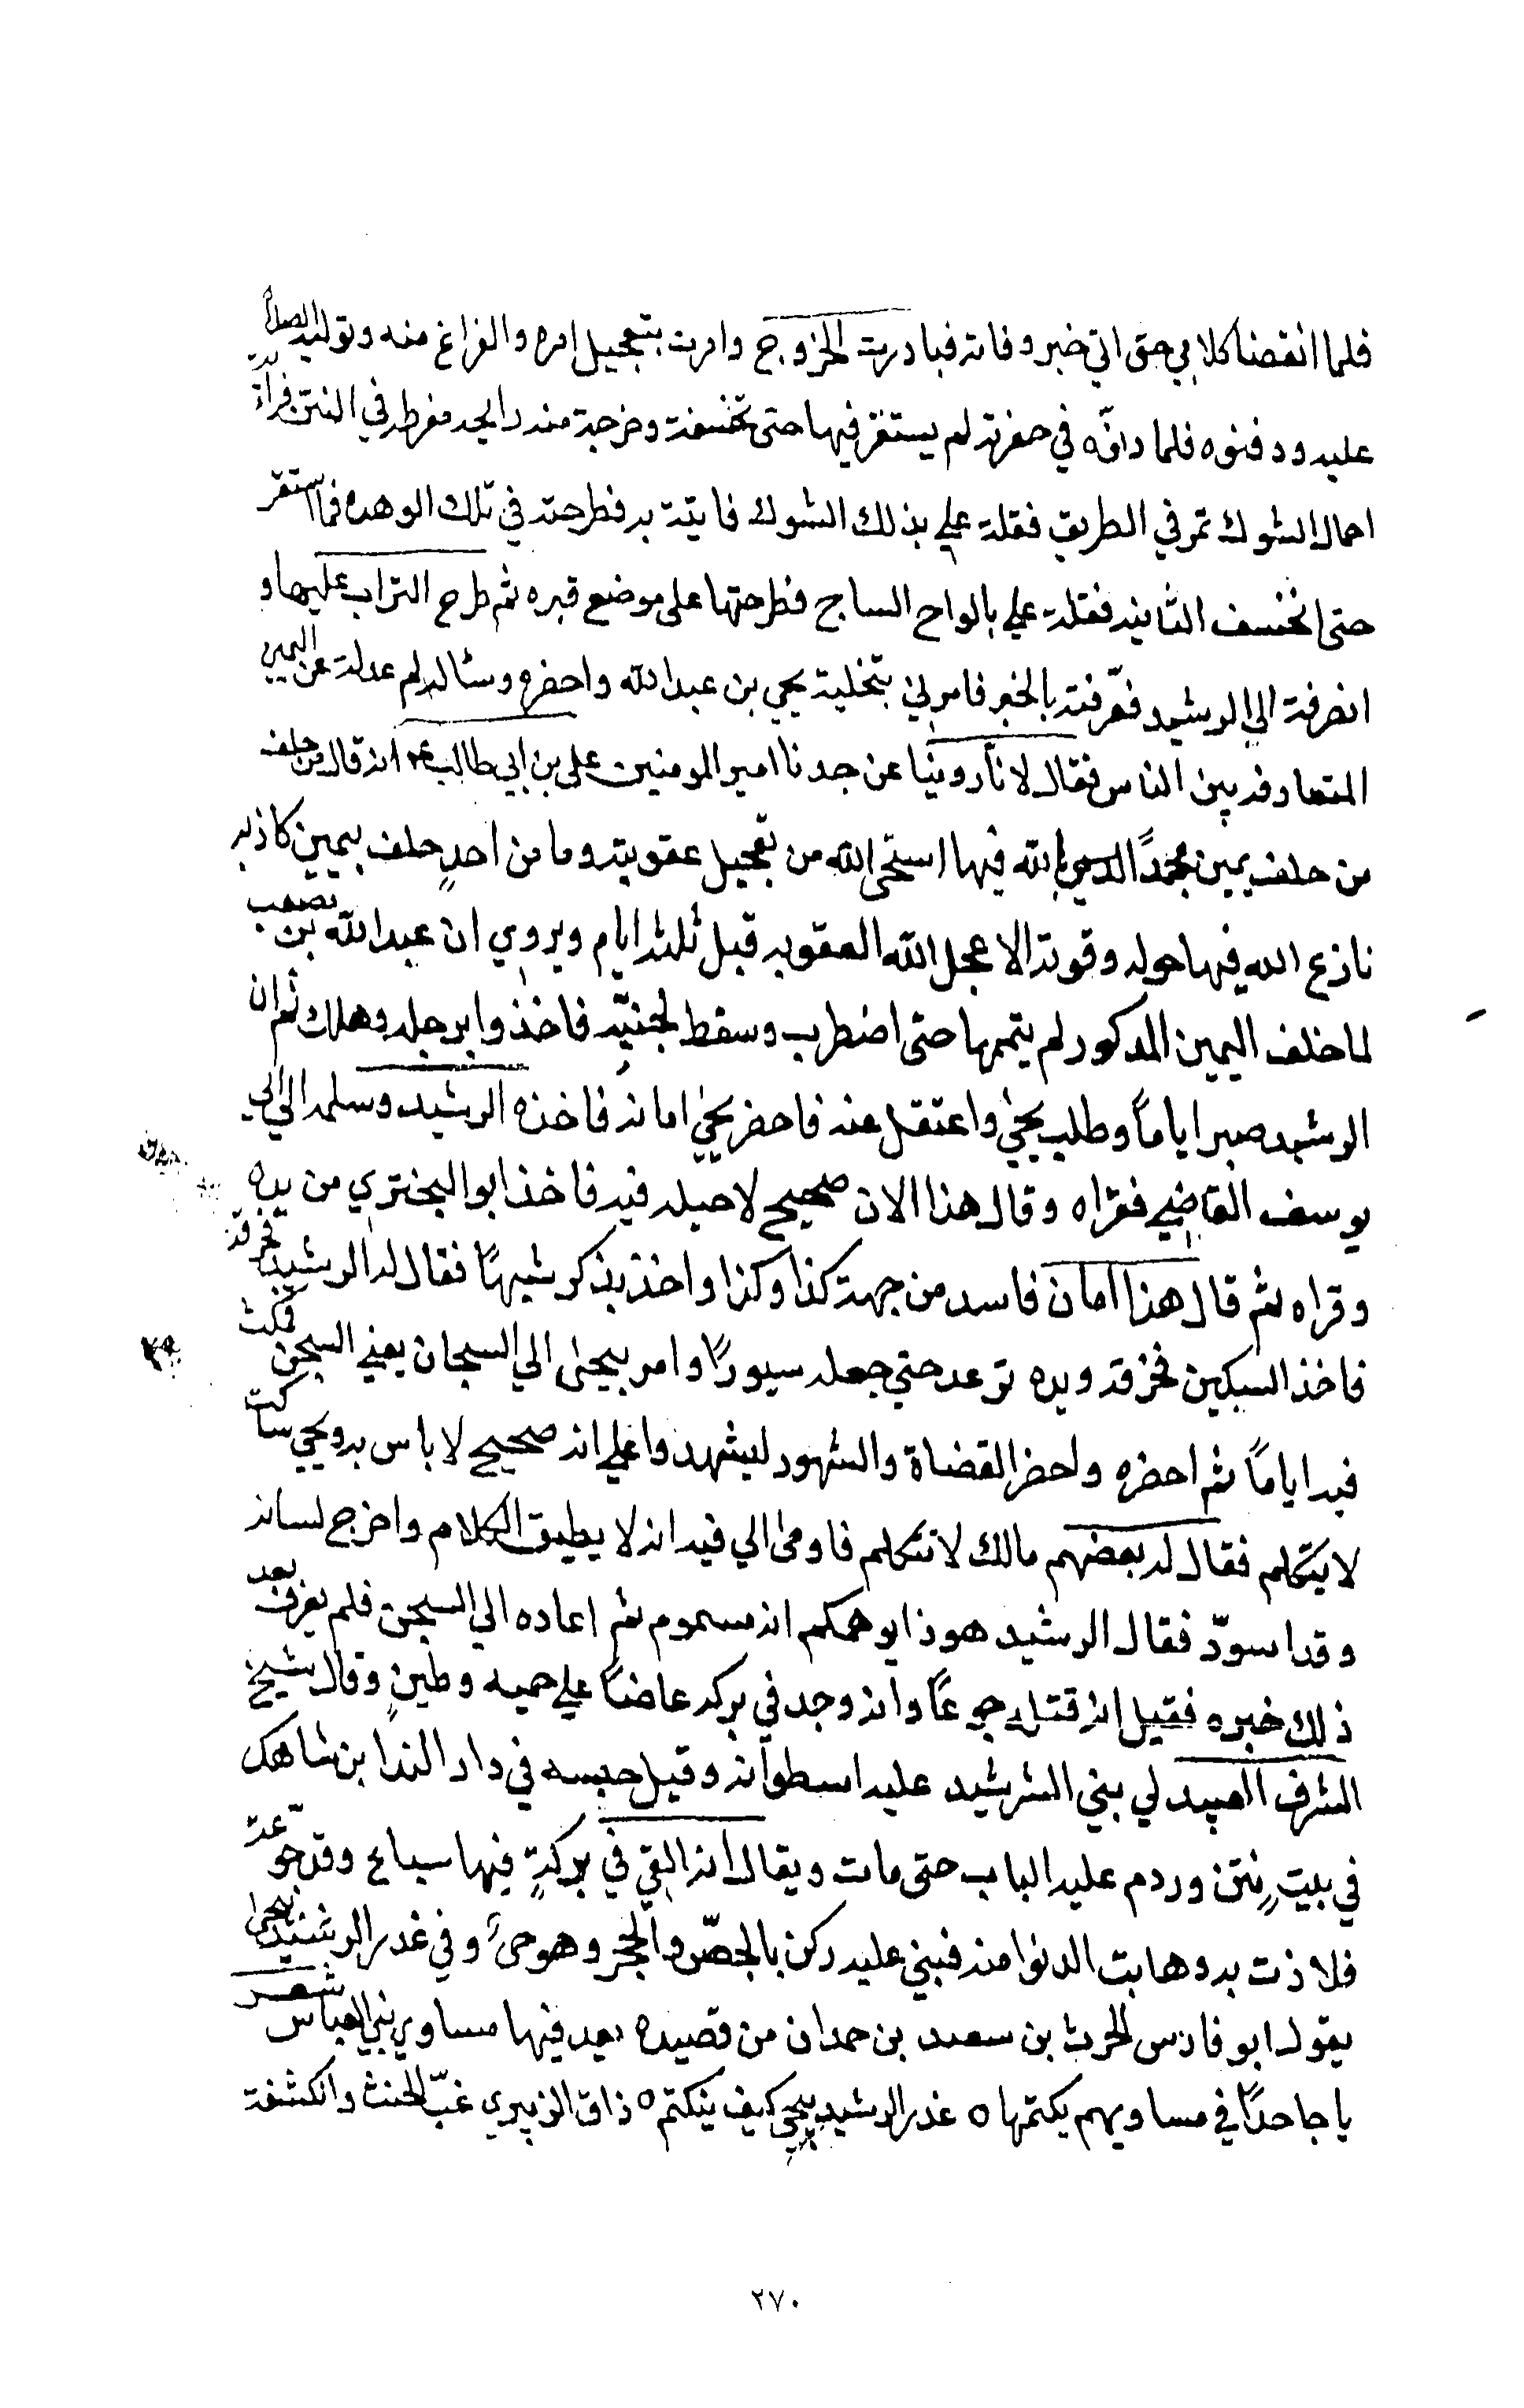 فلما انقضا كلامي حتى اتي خبر وفاته فبادرت الخروج وامرت بتعجيل امره والفراغ منه وتوليه الصلاة
عليه ودفنوه فلما دلوه في حفرته لم يستقر فيها حتى تخسفت وخرجت منه رايحه مفرط في النتن فرايت
احمال الشوك تمر في الطريق فقلت علي بذلك الشوك فايتت به فطرحته في تلك الوهده فما استقر
حتى انخسف الثانيه فقلت علي بالواح الساج فطرحتها على موضع قبره ثم طرح التراب عليها و
انصرفت الي الرشيد فعرّفته بالخبر فامرني بتخلية يحيى بن عبد الله واحضره وسئاله لم عدلت عن اليمين
المتعارفه بين الناس فقال لانا روينا عن جدنا امير المومنين على بن ابي طالب ع م انه قال من حلف
من حلف يمين مجدًا الله فيها استحى الله من تعجيل عقوبته وما من احدٍ حلف بيمين كاذبه
نازع الله فيها حوله وقوته الا عجل الله العقوبه قبل ثلثه ايام ويروي ان عبد الله بن مصعب
لما حلف اليمين المذكور لم يتممها حتى اضطرب وسقط لجنبه فاخذوا برجله وهلك ثم ان
الرشيد صبر اياماً وطلب يحيى واعتقل عنه فاحضر يحيى امانه فاخذه الرشيد وسلمه الى ابي
يوسف القاضي فقراه وقال هذا الان صحيح لا حيله فيه فاخذ ابو البختري من يده
وقراه ثم قال هذا امان فاسد من جهة كذا وكذا واخذ يذكر شبهًا فقال له الرشيد فخرقه
فاخذ السكين فخرقه ويده ترعد حتي جعله سيورًا وامر بيحيى الي السجان يعني السجن فمكث
فيه اياماً ثم احضره واحضر القضاة والشهود ليشهدوا علي انه صحيح لا باس به ويحيي ساكت
لا يتكلم فقال له بعضهم مالك لا تتكلم فاومى الي فيه انه لا يطيق الكلام واخرج لسانه
وقد اسودّ فقال الرشيد هوذا يوهمكم انه مسموم ثم اعاده الي السجن فلم يعرف بعد
ذلك خبره فقيل انه قتله جوعًا وانه وجد في بركه عاضًا علي حميه وطينٍ وقال شيخ
الشرف العبيدلي بني الرشيد عليه اسطوانه وقيل حبسه في دار الندا بن شاهك
في بيت نتن وردم عليه الباب حتى مات ويقال انه القي في بركةٍ فيها سباع وقد جوعت
فلاذت به وهابت الدنوا منه فبني عليه ركن بالجصّ والحجر وهو حىّ وفي غدر الرشيد بيحيى
يقول ابو فارس الحرث بن سعيد بن حمدان من قصيده يعد فيها مساوي بني العباس شعر
يا جاحدًا في مساويهم يكتمها ٥ غدر الرشيد بيحيى كيف ينكتم ٥ ذاق الزبيري غبّ الحنث وانكشفت
٢٧٠